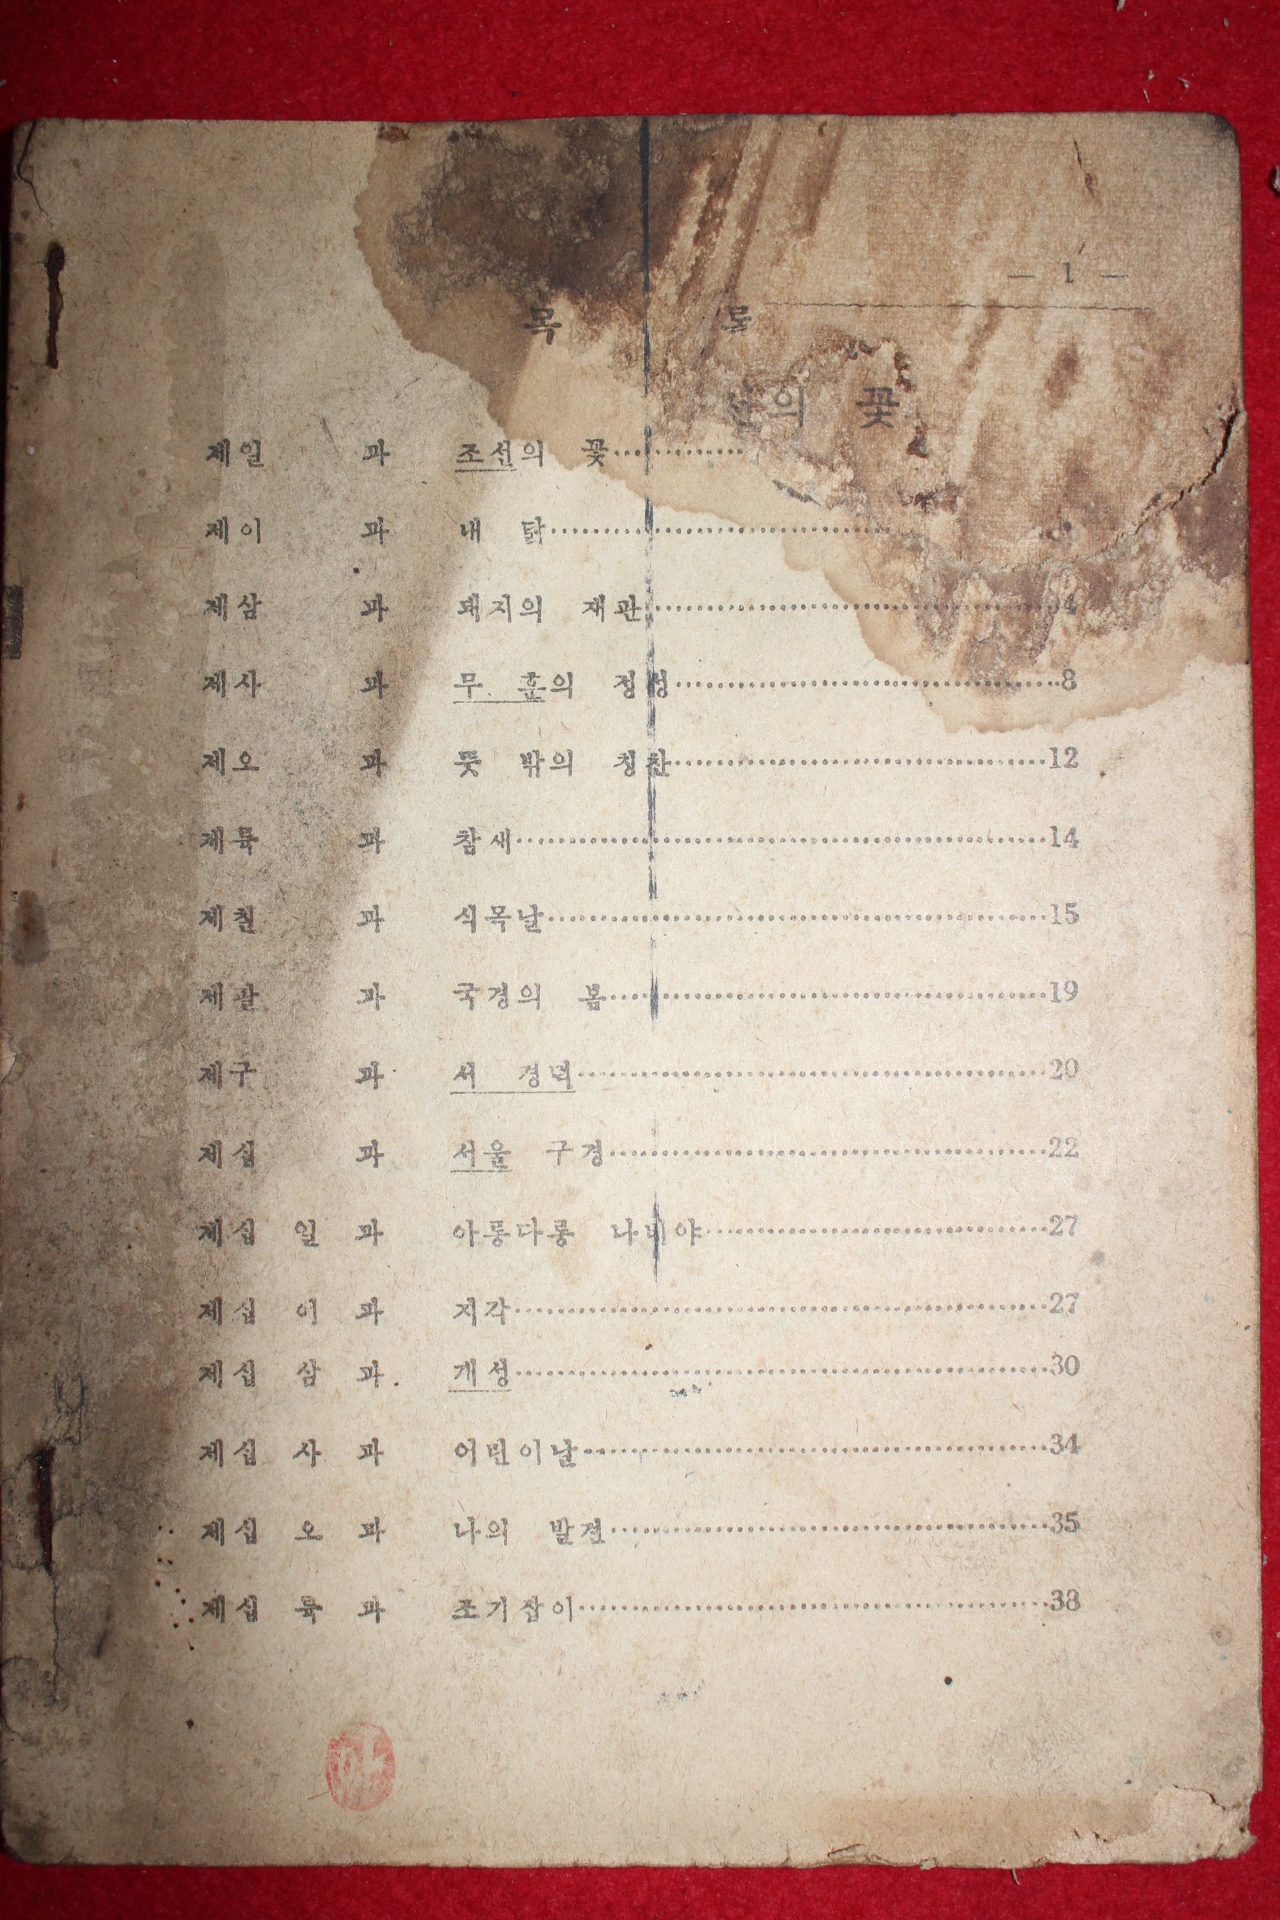 — 1 —
목 록
선의 꽃
제일 과 조선의 꽃
제이 과 내 닭
제삼 과 돼지의 재판 4
제사 과 무 훈의 정성 8
제오 과 뜻 밖의 칭찬 12
제륙 과 참새 14
제칠 과 식목날 15
제팔 과 국경의 봄 19
제구 과 서 경덕 20
제십 과 서울 구경 22
제십 일 과 아롱다롱 나비야 27
제십 이 과 지각 27
제십 삼 과 개성 30
제십 사 과 어린이날 34
제십 오 과 나의 발견 35
제십 륙 과 조기잡이 38